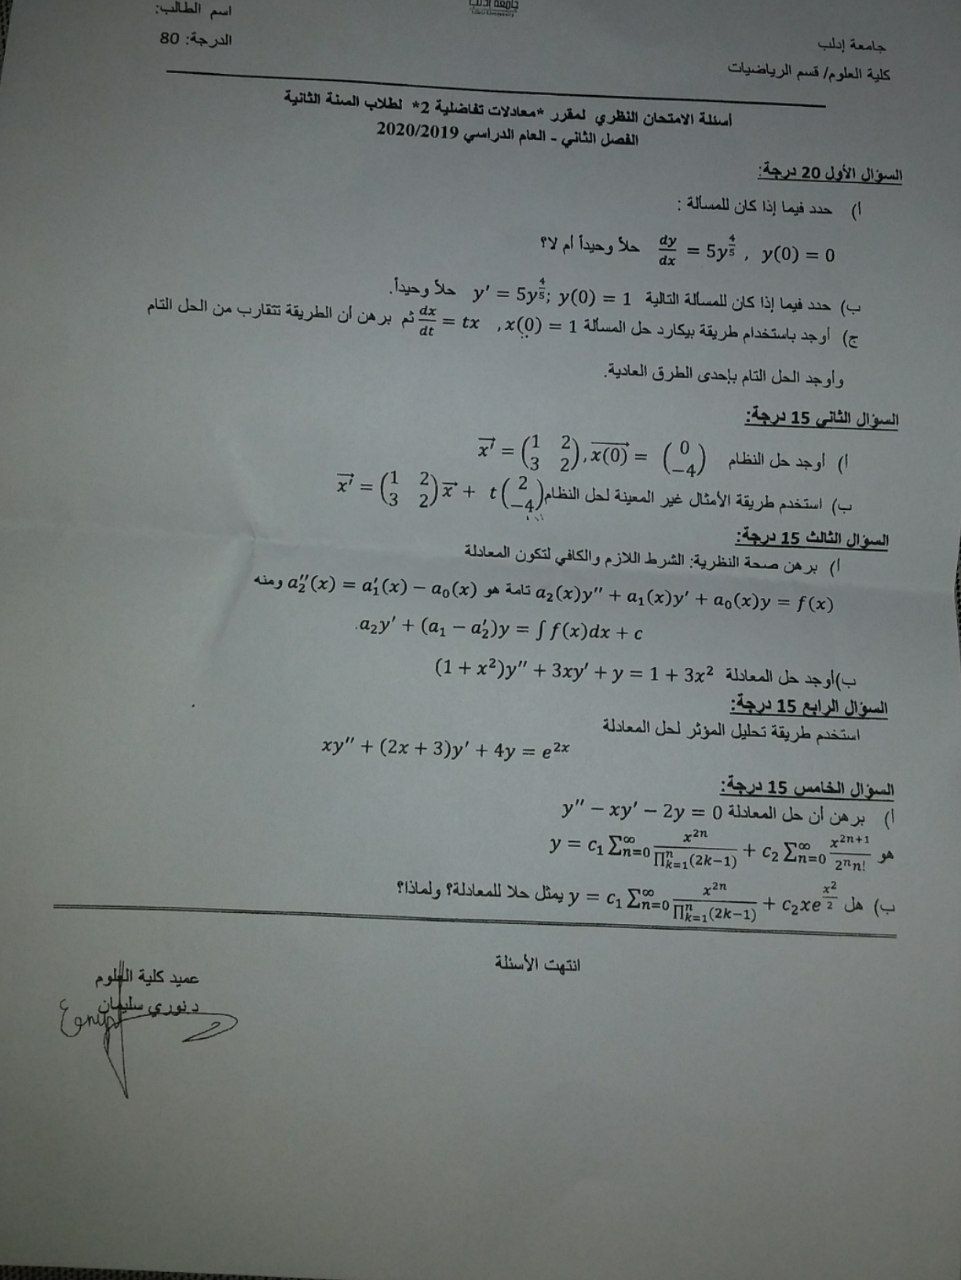 جامعة إدلب
اسم الطالب:
جامعة إدلب
الدرجة: 80
كلية العلوم/ قسم الرياضيات
أسئلة الامتحان النظري لمقرر *معادلات تفاضلية 2* لطلاب السنة الثانية
الفصل الثاني - العام الدراسي 2020/2019
السؤال الأول 20 درجة:
أ) حدد فيما إذا كان للمسألة :
$\frac{dy}{dx} = 5y^{\frac{4}{5}}$ , $y(0) = 0$ حلاً وحيداً أم لا؟
ب) حدد فيما إذا كان للمسألة التالية $y' = 5y^{\frac{4}{5}}; y(0) = 1$ حلاً وحيداً.
ج) أوجد باستخدام طريقة بيكارد حل المسألة $\frac{dx}{dt} = tx$ , $x(0) = 1$ ثم برهن أن الطريقة تتقارب من الحل التام
وأوجد الحل التام بإحدى الطرق العادية.
السؤال الثاني 15 درجة:
أ) أوجد حل النظام $\vec{x'} = \begin{pmatrix} 1 & 2 \\ 3 & 2 \end{pmatrix}, \overrightarrow{x(0)} = \begin{pmatrix} 0 \\ -4 \end{pmatrix}$
ب) استخدم طريقة الأمثال غير المعينة لحل النظام $\vec{x'} = \begin{pmatrix} 1 & 2 \\ 3 & 2 \end{pmatrix}\vec{x} + t\begin{pmatrix} 2 \\ -4 \end{pmatrix}$
السؤال الثالث 15 درجة:
أ) برهن صحة النظرية: الشرط اللازم والكافي لتكون المعادلة
$a_2(x)y'' + a_1(x)y' + a_0(x)y = f(x)$ تامة هو $a_2''(x) = a_1'(x) - a_0(x)$ ومنه
$a_2y' + (a_1 - a_2')y = \int f(x)dx + c$.
ب)أوجد حل المعادلة $(1 + x^2)y'' + 3xy' + y = 1 + 3x^2$
السؤال الرابع 15 درجة:
استخدم طريقة تحليل المؤثر لحل المعادلة
$xy'' + (2x + 3)y' + 4y = e^{2x}$
السؤال الخامس 15 درجة:
أ) برهن أن حل المعادلة $y'' - xy' - 2y = 0$
هو $y = c_1 \sum_{n=0}^{\infty} \frac{x^{2n}}{\prod_{k=1}^{n}(2k-1)} + c_2 \sum_{n=0}^{\infty} \frac{x^{2n+1}}{2^n n!}$
ب) هل $y = c_1 \sum_{n=0}^{\infty} \frac{x^{2n}}{\prod_{k=1}^{n}(2k-1)} + c_2xe^{\frac{x^2}{2}}$ يمثل حلا للمعادلة؟ ولماذا؟
انتهت الأسئلة
عميد كلية العلوم
د.نوري سليمان